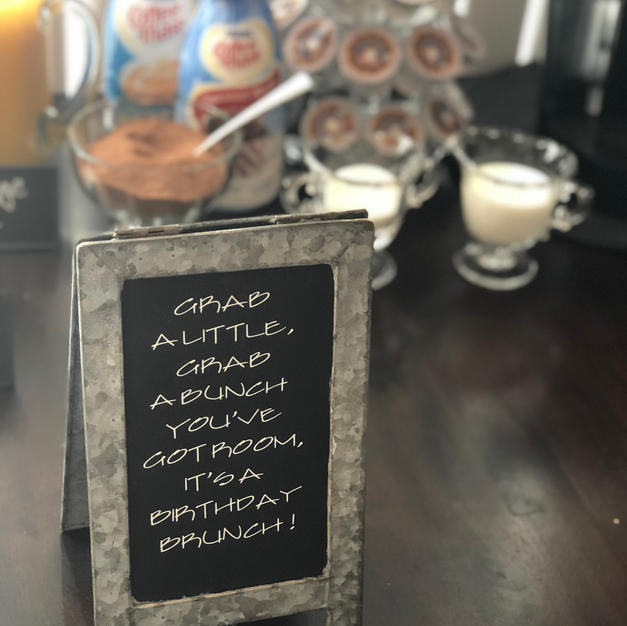 GRAB
A LITTLE,
GRAB
A BUNCH
YOU'VE
GOT ROOM,
IT'S A
BIRTHDAY
BRUNCH!
Coffee
mate
Coffee
mate